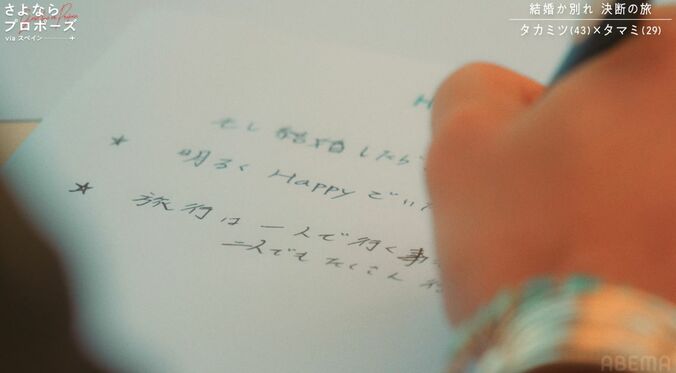 さよなら
プロポーズ
via スペイン
結婚か別れ 決断の旅
タカミツ(43)×タマミ(29)
H
もし結婚したら
★ 明るく Happy でいい
★ 旅行は一人で行く事
二人でもたくさん行
ABEMA